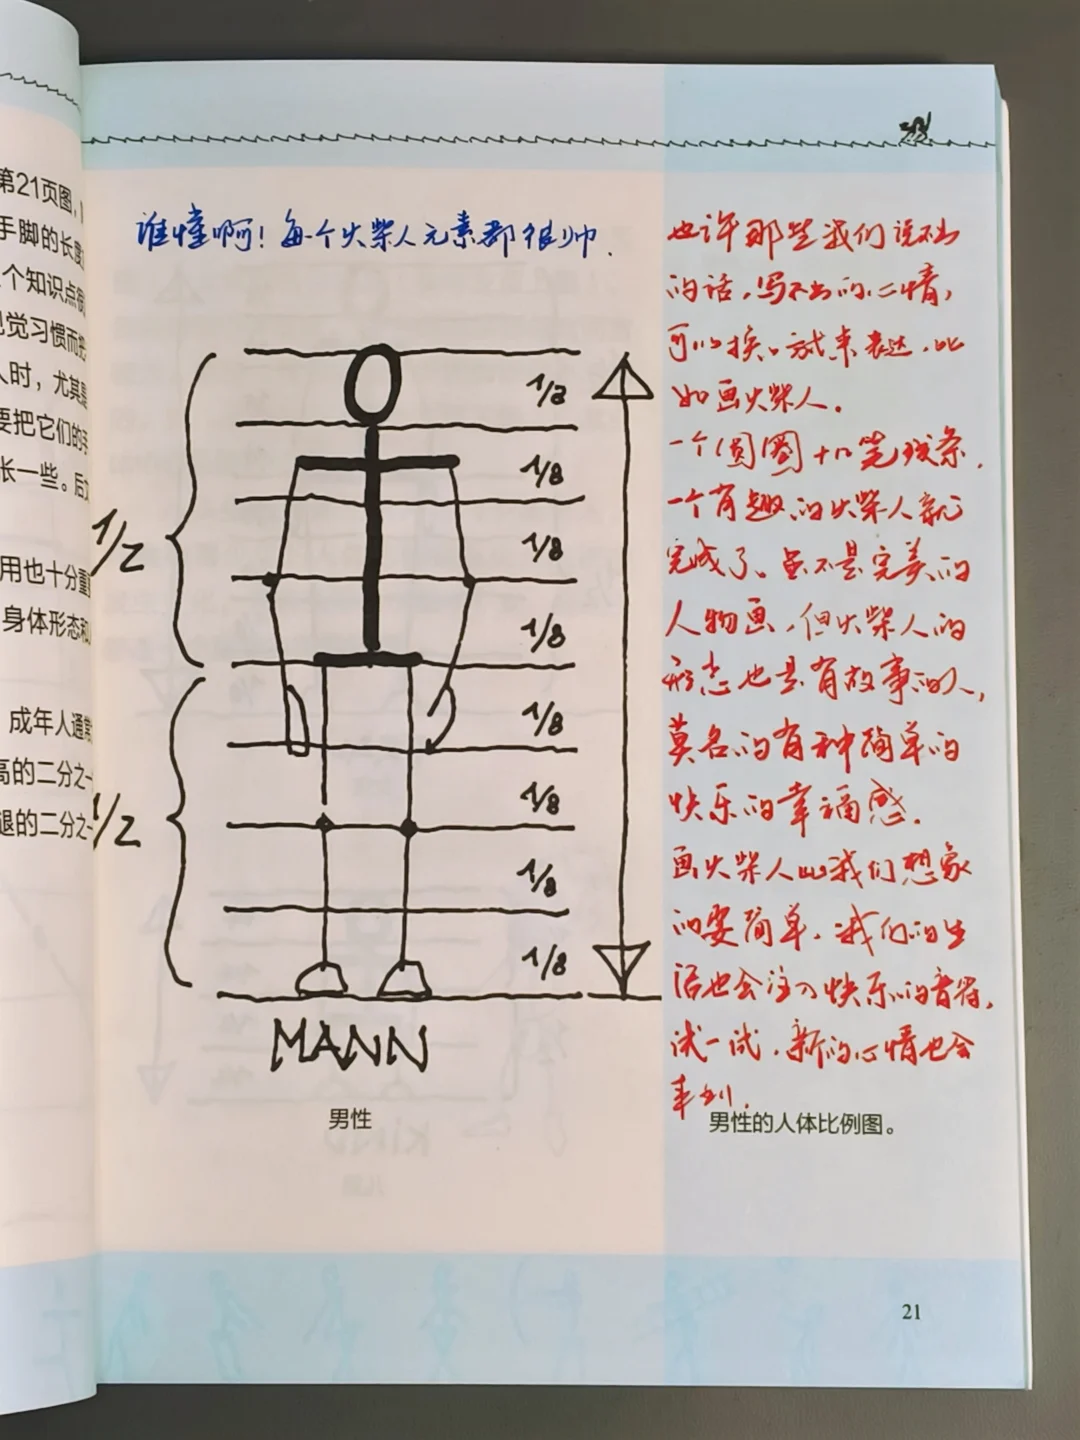 第21页图，
手脚的长度
个知识点
觉习惯而
人时，尤其是
要把它们的手
长一些。后
用也十分重
身体形态和
成年人通常
高的二分之一
腿的二分之一
谁懂啊！每个火柴人元素都很帅.
1/2
1/2
1/8
1/8
1/8
1/8
1/8
1/8
1/8
1/8
MANN
男性
也许那些我们说不出
的话，写不出的心情，
可以换个方式来表达，比
如画火柴人.
一个圆圈+几笔线条，
一个有趣的火柴人就
完成了。虽不是完美的
人物画，但火柴人的
形态也是有故事的人，
莫名的有种简单的
快乐的幸福感.
画火柴人比我们想象
的要简单，我们的生
活也会注入快乐的音符，
试一试，新的心情也会
来到.
男性的人体比例图。
21